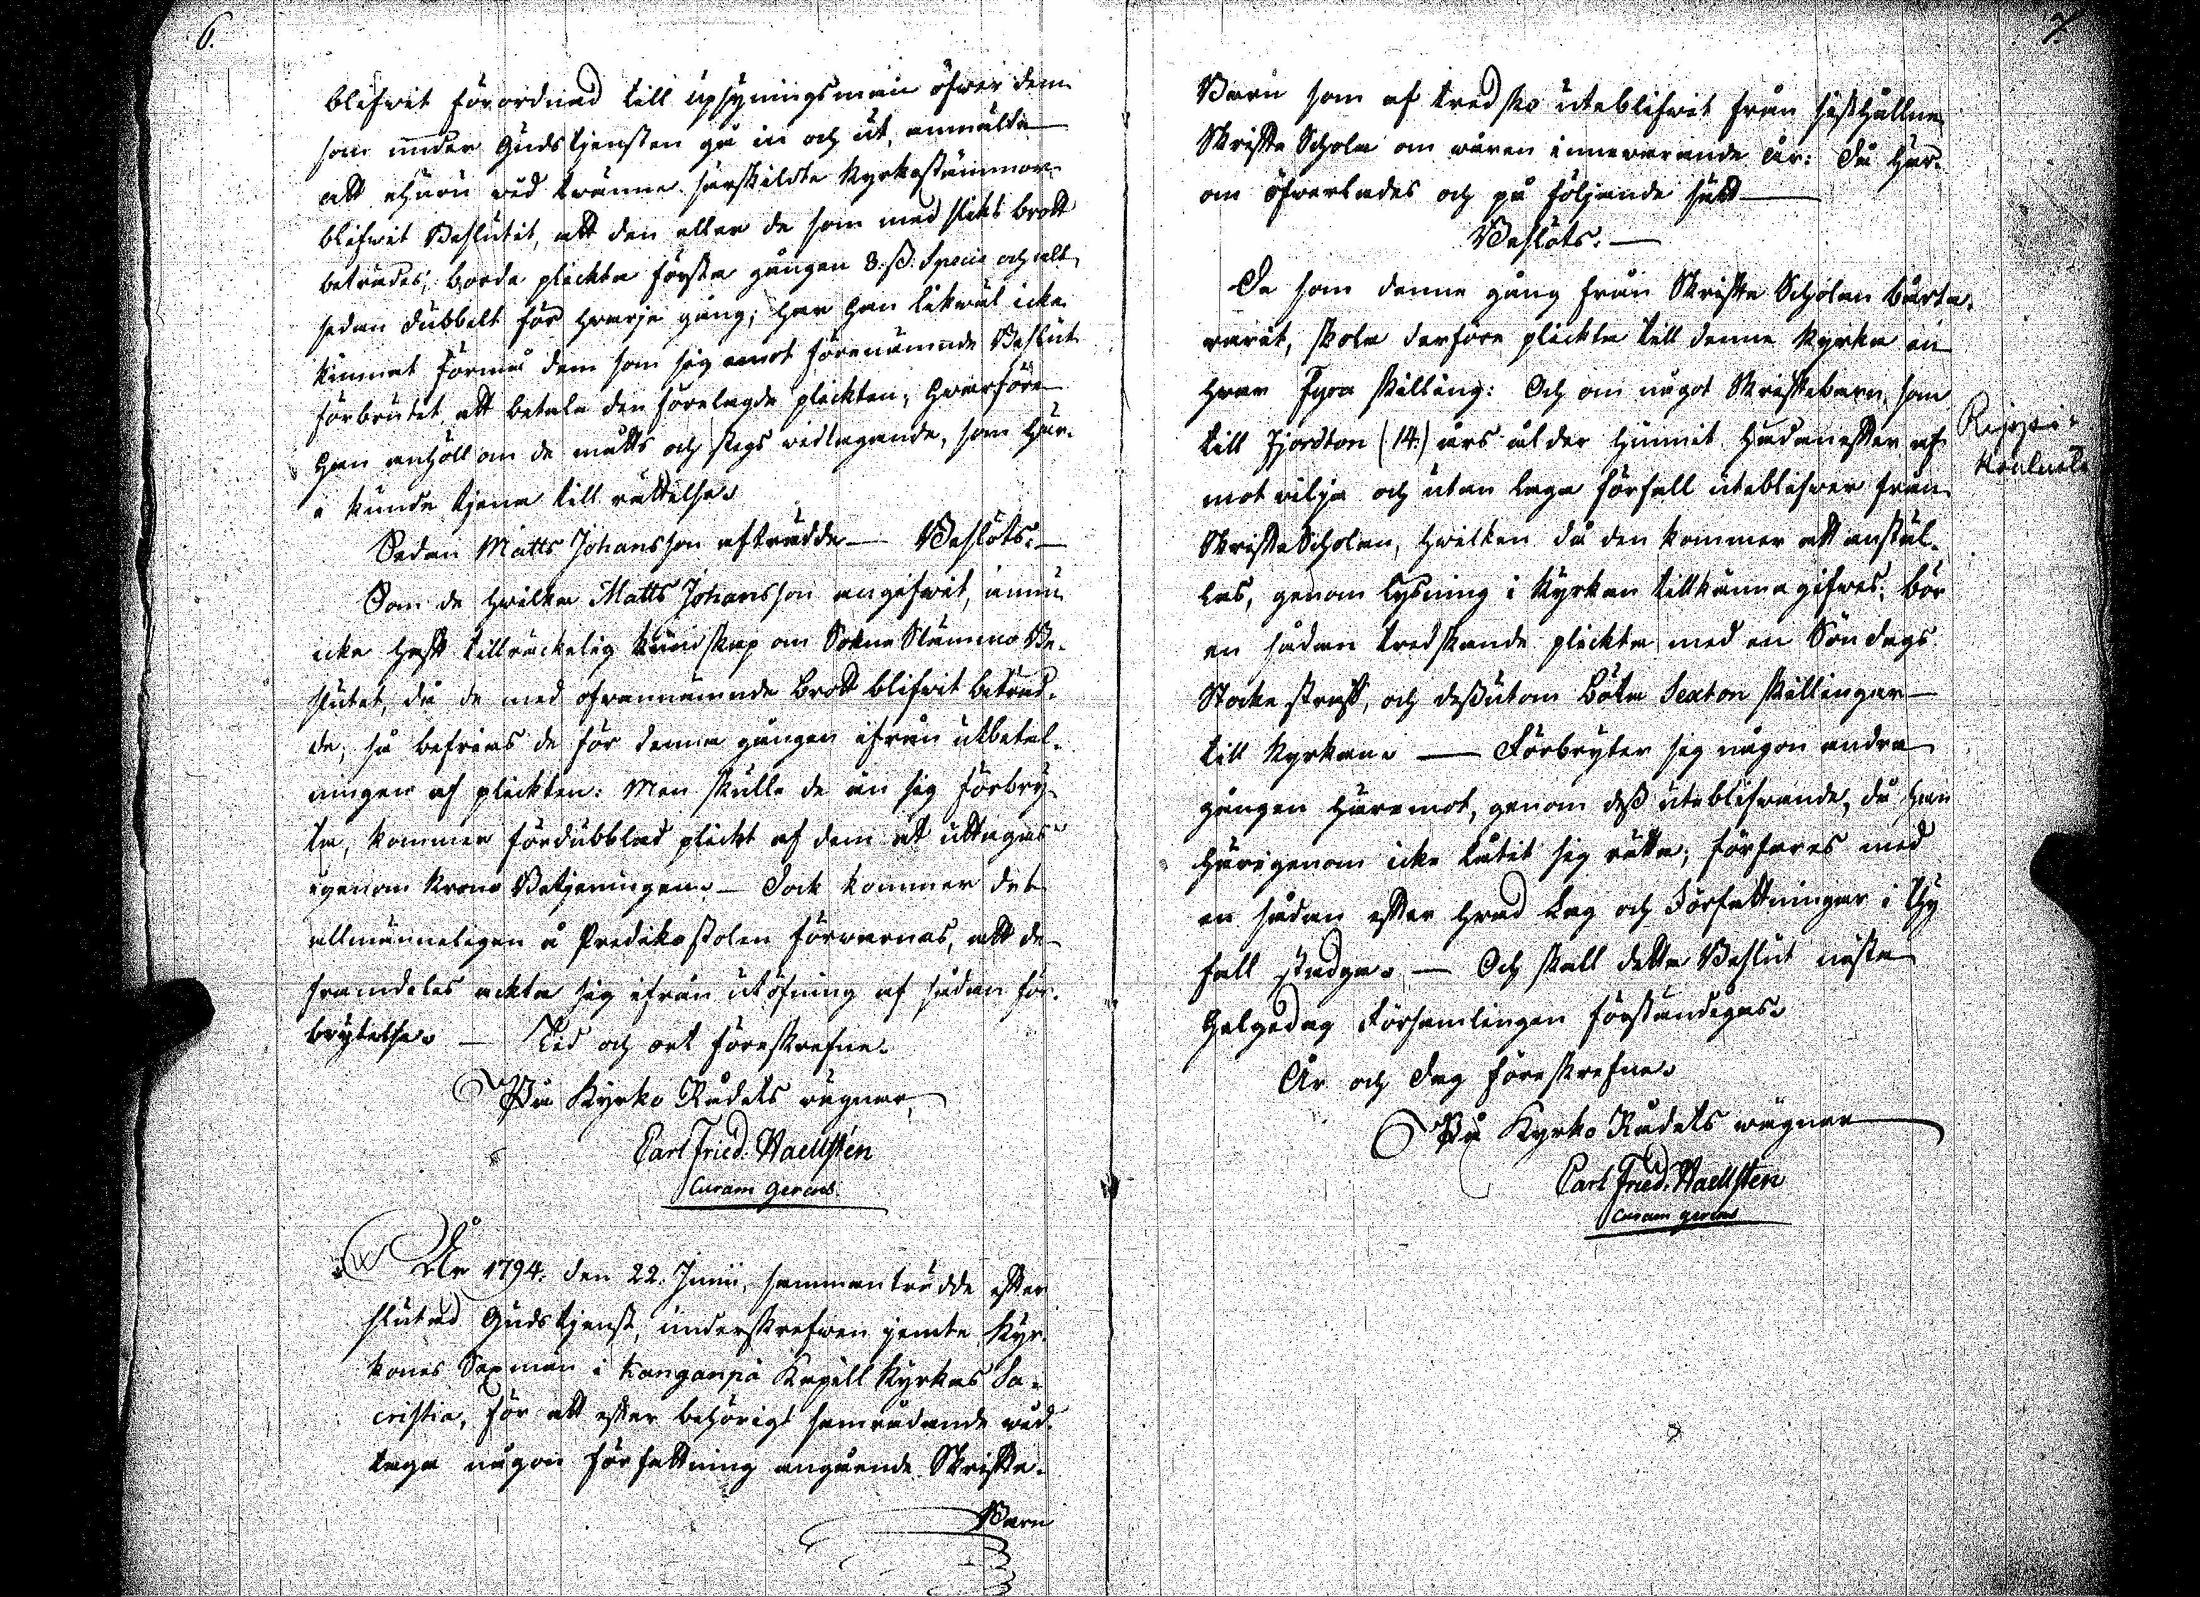 6.
blifwit förordnad till upsyningsman öfwer dem
som under Gudstjensten gå in och ut, anmälde
att ehuru wid twänne särskildte Kyrkostämmor
blifwit Beslutit, att den eller de som med slikt brott
beträdes, borde plickta första gången 8. ß. Specie och allt
sedan dubbelt för hvarje gång; har han likwäl icke
kunnat förmå dem som sig emot förenämnde Beslut
förbrutet att betala den förelagde plickten, hwarföre
han anhöll om de måtts och stegs widtagande, som här-
i kunde tjena till rättelse.
Sedan Matts Johansson afträdde — Beslöts: —
Som de hwilka Matts Johansson angifwit, ännu
icke haft tillräckelig kundskap om Sokne Stämmo Be-
slutet, då de med ofwannämnde brott blifwit beträd-
de, så befrias de för denna gången ifrån utbetal-
ningen af plickten: Men skulle de än sig förbry-
ta, kommer fördubblad plickt af dem att uttagas
igenom Krono Betjeningen. — Dock kommer det
allmänneligen å Predikostolen förwarnas, att de
framdeles ackta sig ifrån utöfning af sådan för-
brytelse. — Tid och ort föreskrefne.
På Kyrko Rådets vägnar,
Carl Fried. Waellstén
Curam gerens.
År 1794. den 22. Junii, sammanträdde efter
slutad Gudstjenst, underskrefwen jemte Kyr-
kones Sexmän i Kanganpä Kapell Kyrkas Sa-
cristia, för att efter behörigt samrådande wid-
taga någon författning angående Skrifte-
Barn
7.
Barn som af tredsko uteblifwit från sisthållne
Skrifte Schola om wåren innewarande år: Då här-
om öfwerlades och på följande sätt —
Beslöts. —
De som denna gång från Skrifte Scholan borta-
varit, skola derföre plickta till denne Kyrka en
hvar Fyra skilling: Och om något Skriftebarn, som
till Fjordton (14.) års ålder hunnit hädanefter af
motvilja och utan laga förfall uteblifwer från
Skrifte Scholan, hwilken då den kommer att anstäl-
las, genom lysning i Kyrkan tillkännagifwes, bör
en sådan tredskande plickta med en Söndags
Stocke straff, och dessutom böta Sexton skillingar
till Kyrkan. — Förbryter sig någon andra
gången häremot, genom dess uteblifwande, då han
härigenom icke låtit sig rätta, förfares med
en sådan efter hvad Lag och Författningar i thy
fall stadga. — Och skall detta Beslut nästa
Helgedag Församlingen förständigas.
År och dag föreskrefne.
På Kyrko Rådets wägnar
Carl Fried. Waellsten
Curam gerens